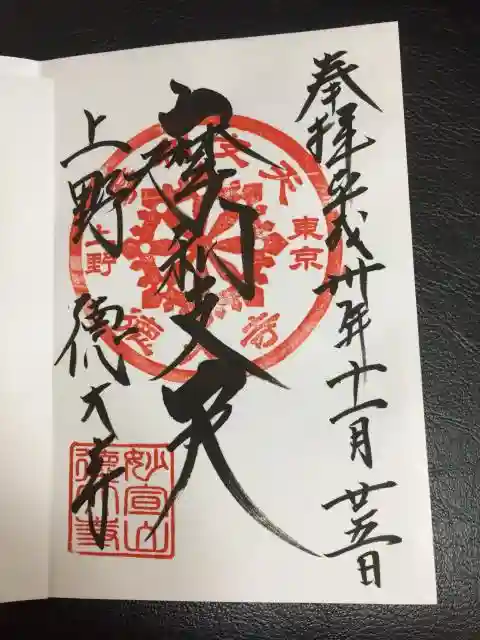 奉拝 平成卅年十一月廿五日
摩利支天
上野 徳大寺
東京
上野
徳大寺
妙宣山
徳大寺